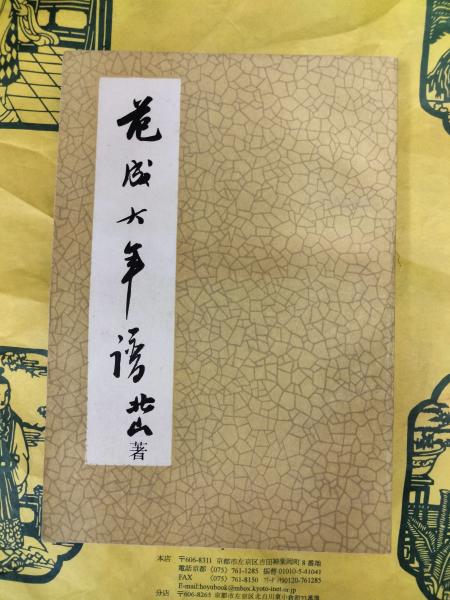 范成大年譜 北山著
本店 〒606-8311 京都市左京区吉田神楽岡町 8 番地
電話京都 (075) 761-1285 振替 01010-5-4104
FAX (075) 761-8150 0120-761285
E-mail:hoyubook@mbox.kyoto-inet.or.jp
分店 〒606-8265 京都市左京区北白川東小倉町